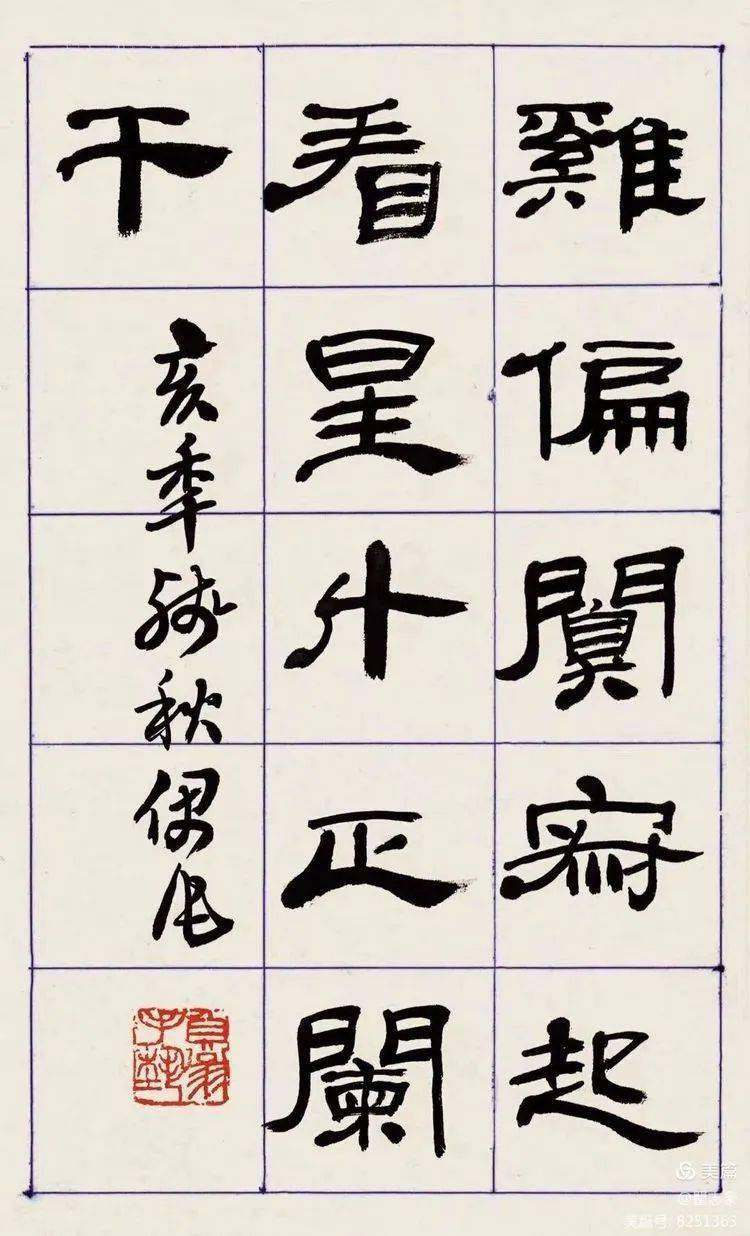 雞偏闃寂起
看星斗正闌
干
亥年殘秋偶作
美篇
美篇号 8251363